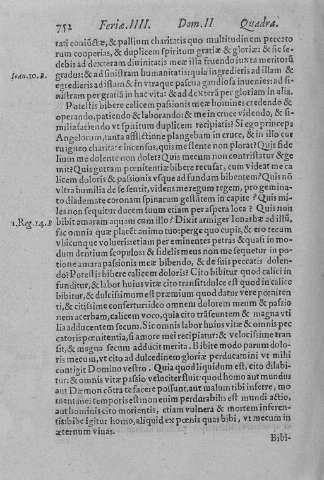 752 Feriæ. IIII. Dom. II Quadra.
tati coniũctæ, & pallium charitatis quo multitudinem peccato
rum cooperias, & duplicem spiritum gratiæ & gloriæ: & sic se-
debis ad dexteram diuinitatis meæ illa fruendo iuxta meritorũ
Ioan. 10. B. gradus: & ad sinistram humanitatis: quia ingredieris ad illam &
egredieris ad istam & in vtraque pascua gaudiosa inuenies: ad si-
nistram per gratiã in hac vita: & ad dexterã per gloriam in alia.
Potestis bibere calicem passionis meæ homines credendo &
operando, patiendo & laborando: & me in cruce videndo, & si-
milia faciendo vt spiritum duplicem recipiatis? Si ego princeps
Angelorum, tanta afflictione plangebam in cruce, & in illo cur
ru igneo charitate incensus, quis me flente non plorat? Quis fide
lium me dolente non dolet? Quis mecum non contristatur & ge
mit? Quis gottam pœnitentiæ bibere recusat, cum videat me ca
licem doloris & passionis vsque ad fundam bibentem? Quis nõ
vltra humilia de se sentit, videns me regem regem, pro gemina-
to diademate coronam spinacam gestãtem in capite? Quis mi-
les non sequitur ducem suum etiam per aspera loca? Quis non
1. Reg. 14. B bibit amaram aquam cum illo? Dixit armiger Ionathæ ad illũ,
fac omnia quæ placẽt animo tuo: perge quo cupis, & ero tecum
vbicunque volueris etiam per eminentes petras & quasi in mo-
dum dentium scopulos: & fidelis mens non me sequetur in po-
tione amara passionis meæ bibendo, & de suis peccatis dolen-
do? Potestis bibere calicem doloris? Cito bibitur quod calici in
funditur, & labor huius vitæ cito transit: dulce est quod in calice
bibitur, & dulcissimum est præmium quod datur vere pœniten
ti, & citissime confertur: ideo omnem dolorem meum & passio
nem acerbam, calicem voco, quia cito trãseuntem & magna vti
lia adducentem secum. Sic omnis labor huius vitæ & omnis pec
catoris pœnitentia, si amore mei recipiatur: & velocissime tran-
sit, & magna secum adducit merita. Bibite modo parum dolo-
ris mecum, vt cito ad dulcedinem gloriæ perducamini ve mihi
contigit Domino vestro. Quia quod liquidum est, cito dilabi-
tur: & omnis vitæ passio velociter fluit: quod homo aut mundus
aut Dæmon cõtra te facere possunt, aut malum tibi inferre, mo
mentanei temporis est: non enim perdurabilis est mundi actio,
aut hominis cito morientis, etiam vulnera & mortem inferen-
tis: bibe igitur homo, aliquid ex pœnis quas bibi, vt mecum in
æternum viuas.
Bibi-